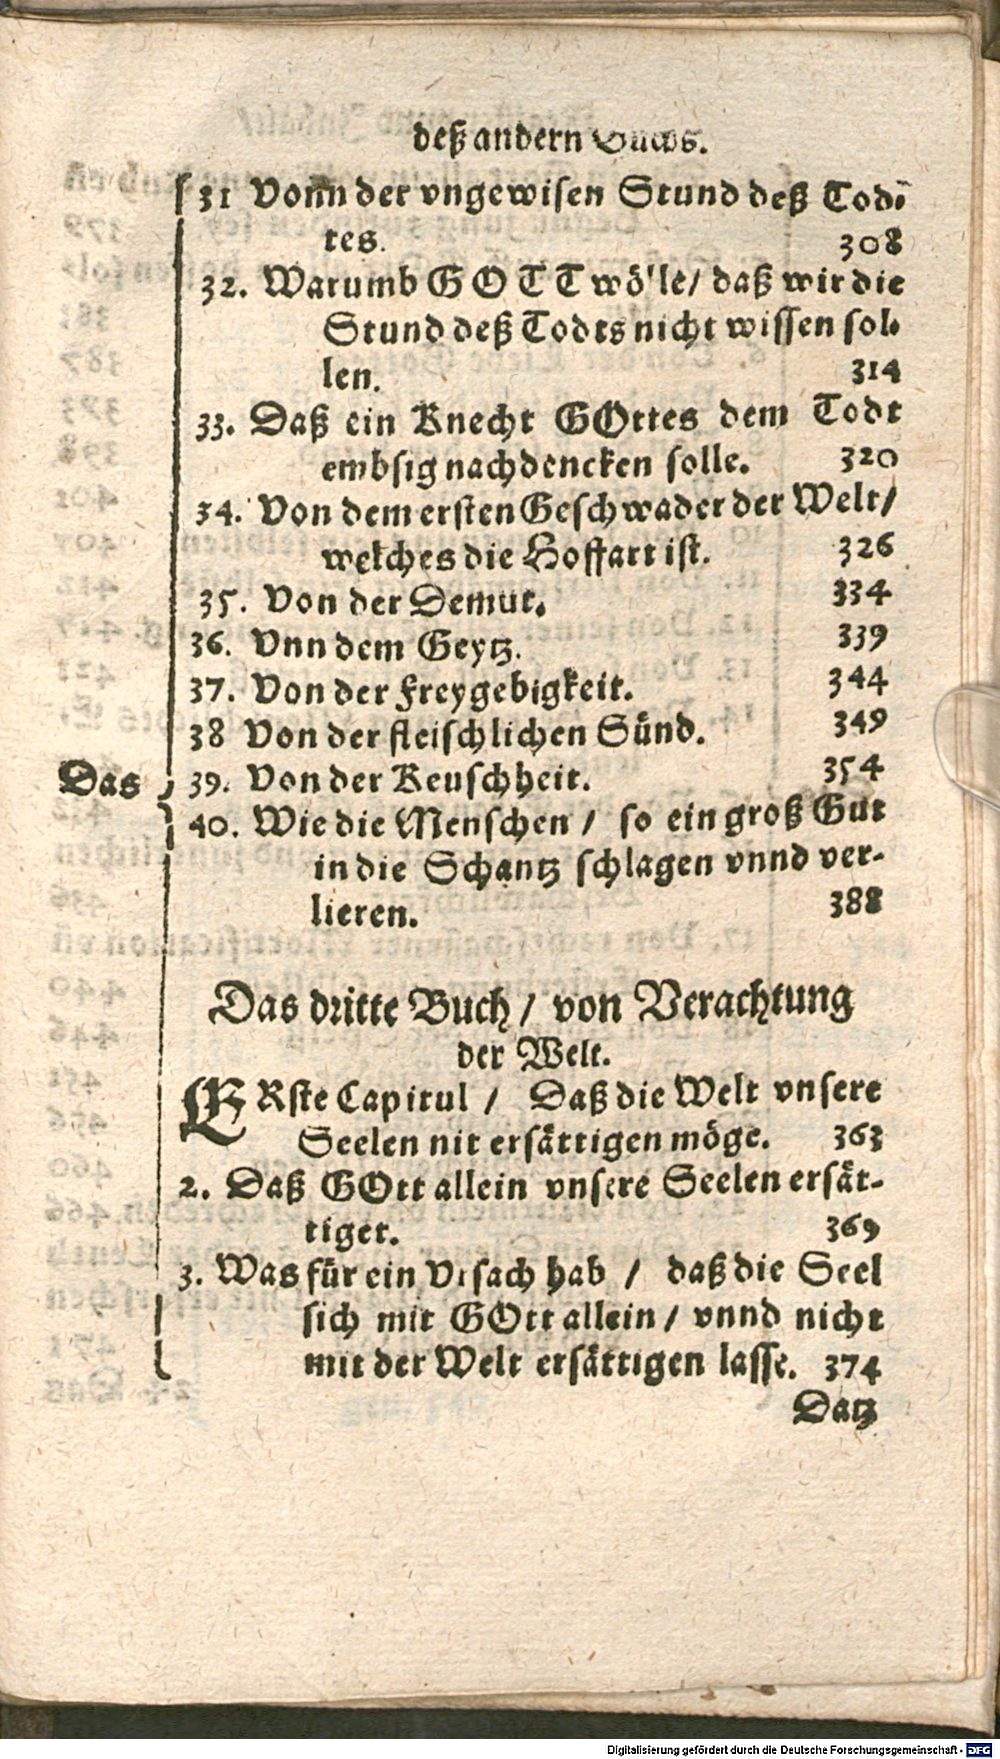 deß andern Buchs.
31 Vonn der vngewisen Stund deß Tod-
tes. 308
32. Warumb GOTT wölle/ daß wir die
Stund deß Todts nicht wissen sol-
len. 314
33. Daß ein Knecht GOttes dem Todt
embsig nachdencken solle. 320
34. Von dem ersten Geschwader der Welt/
welches die Hoffart ist. 326
35. Von der Demut. 334
36. Vnn dem Geytz. 339
37. Von der Freygebigkeit. 344
38 Von der fleischlichen Sünd. 349
Das 39. Von der Keuschheit. 354
40. Wie die Menschen / so ein groß Gut
in die Schantz schlagen vnnd ver-
lieren. 388
Das dritte Buch / von Verachtung
der Welt.
ERste Capitul / Daß die Welt vnsere
Seelen nit ersättigen möge. 363
2. Daß GOtt allein vnsere Seelen ersät-
tiget. 369
3. Was für ein Vrsach hab / daß die Seel
sich mit GOtt allein / vnnd nicht
mit der Welt ersättigen lasse. 374
Datz
Digitalisierung gefördert durch die Deutsche Forschungsgemeinschaft - DFG